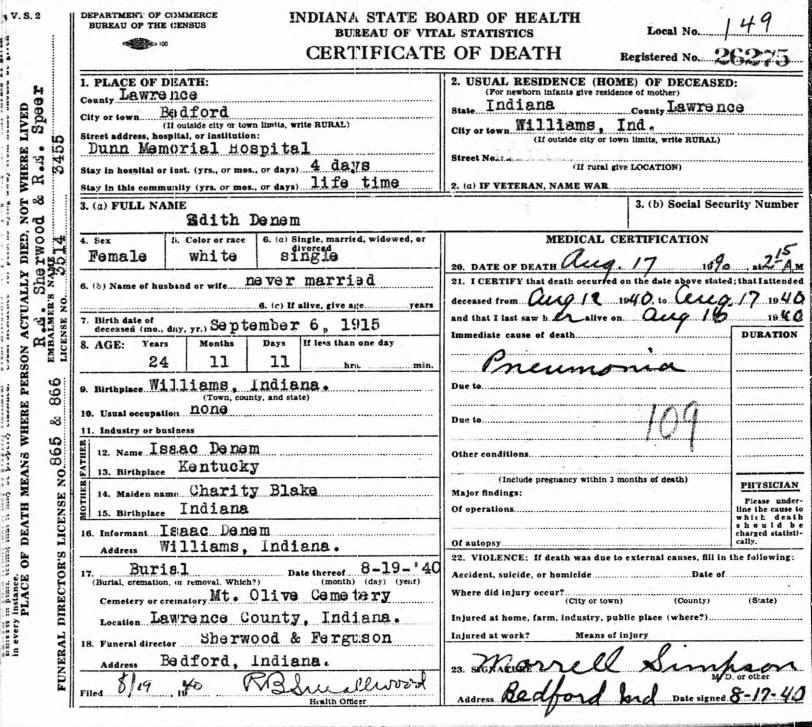 V. S. 2
DEPARTMENT OF COMMERCE
BUREAU OF THE CENSUS
INDIANA STATE BOARD OF HEALTH
BUREAU OF VITAL STATISTICS
CERTIFICATE OF DEATH
Local No. 149
Registered No. 26275
1. PLACE OF DEATH:
County Lawrence
City or town Bedford
(If outside city or town limits, write RURAL)
Street address, hospital, or institution:
Dunn Memorial Hospital
Stay in hospital or inst. (yrs., or mos., or days) 4 days
Stay in this community (yrs. or mos., or days) life time
2. USUAL RESIDENCE (HOME) OF DECEASED:
(For newborn infants give residence of mother)
State Indiana County Lawrence
City or town Williams, Ind.
(If outside city or town limits, write RURAL)
Street No.
(If rural give LOCATION)
2. (a) IF VETERAN, NAME WAR
3. (a) FULL NAME
Edith Denem
3. (b) Social Security Number
4. Sex
Female
5. Color or race
white
6. (a) Single, married, widowed, or divorced
single
6. (b) Name of husband or wife never married
6. (c) If alive, give age years
7. Birth date of
deceased (mo., day, yr.) September 6, 1915
8. AGE: Years Months Days If less than one day
24 11 11 hrs. min.
9. Birthplace Williams, Indiana.
(Town, county, and state)
10. Usual occupation none
11. Industry or business
FATHER
12. Name Isaac Denem
13. Birthplace Kentucky
MOTHER
14. Maiden name Charity Blake
15. Birthplace Indiana
16. Informant Isaac Denem
Address Williams, Indiana.
17. Burial Date thereof 8-19-'40
(Burial, cremation, or removal. Which?) (month) (day) (year)
Cemetery or crematory Mt. Olive Cemetery
Location Lawrence County, Indiana.
18. Funeral director Sherwood & Ferguson
Address Bedford, Indiana.
Filed 8/19 1940 RB Smallwood
Health Officer
MEDICAL CERTIFICATION
20. DATE OF DEATH Aug. 17 1940 at 2 15 A M
21. I CERTIFY that death occurred on the date above stated; that I attended
deceased from Aug 12 1940 to Aug 17 1940
and that I last saw h er alive on Aug 16 1940
Immediate cause of death
DURATION
Pneumonia
Due to
Due to
109
Other conditions
(Include pregnancy within 3 months of death)
Major findings:
Of operations
Of autopsy
PHYSICIAN
Please under-
line the cause to
which death
should be
charged statisti-
cally.
22. VIOLENCE: If death was due to external causes, fill in the following:
Accident, suicide, or homicide Date of
Where did injury occur?
(City or town) (County) (State)
Injured at home, farm, industry, public place (where?)
Injured at work? Means of injury
23. SIGNATURE Morrell Simpson
M. D. or other
Address Bedford Ind Date signed 8-17-40
in every instance.
PLACE OF DEATH MEANS WHERE PERSON ACTUALLY DIED, NOT WHERE LIVED
R.E. Sherwood & R.E. Speer
EMBALMER'S NAME
LICENSE NO. 3514 3455
FUNERAL DIRECTOR'S LICENSE NO. 865 & 866